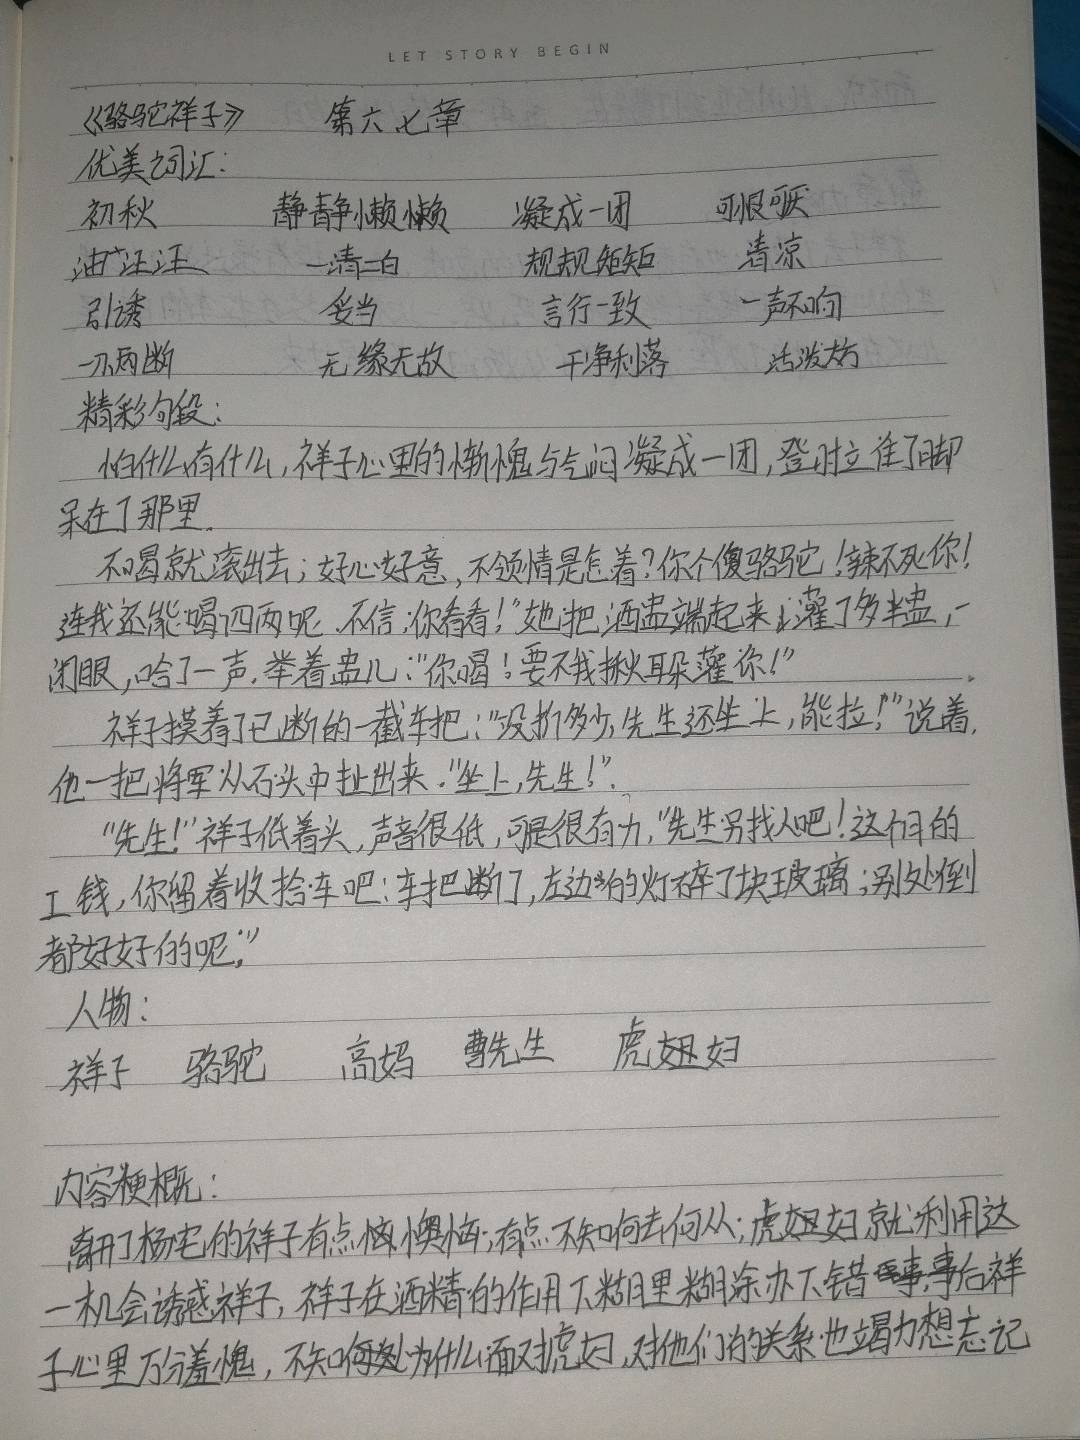 LET STORY BEGIN
《骆驼祥子》 第六七章
优美词汇:
初秋 静静懒懒 凝成一团 可恨可厌
油汪汪 一清二白 规规矩矩 清凉
引诱 妥当 言行一致 一声不响
一刀两断 无缘无故 干净利落 活泼大方
精彩句段:
怕什么有什么,祥子心里的惭愧与气闷凝成一团,登时立住了脚
呆在了那里.
不喝就滚出去;好心好意,不领情是怎着?你个傻骆驼!辣不死你!
连我还能喝四两呢.不信,你看看!"她把酒盅端起来,灌了多半盅,一
闭眼,哈了一声.举着盅儿:"你喝!要不我揪耳朵灌你!"
祥子摸着了已断的一截车把:"没折多少,先生还坐上,能拉!"说着,
他一把将军从石头中扯出来."坐上,先生!".
"先生!"祥子低着头,声音很低,可是很有力,"先生另找人吧!这个月的
工钱,你留着收拾车吧:车把断了,左边的灯碎了块玻璃;别处倒
都好好的呢."
人物:
祥子 骆驼 高妈 曹先生 虎妞妇
内容梗概:
离开了杨宅的祥子有点懊恼,有点不知何去何从;虎妞妇就利用这
一机会诱惑祥子,祥子在酒精的作用下糊里糊涂办下错事,事后祥
子心里万分羞愧,不知何处为什么面对虎妇,对他们的关系也竭力想忘记